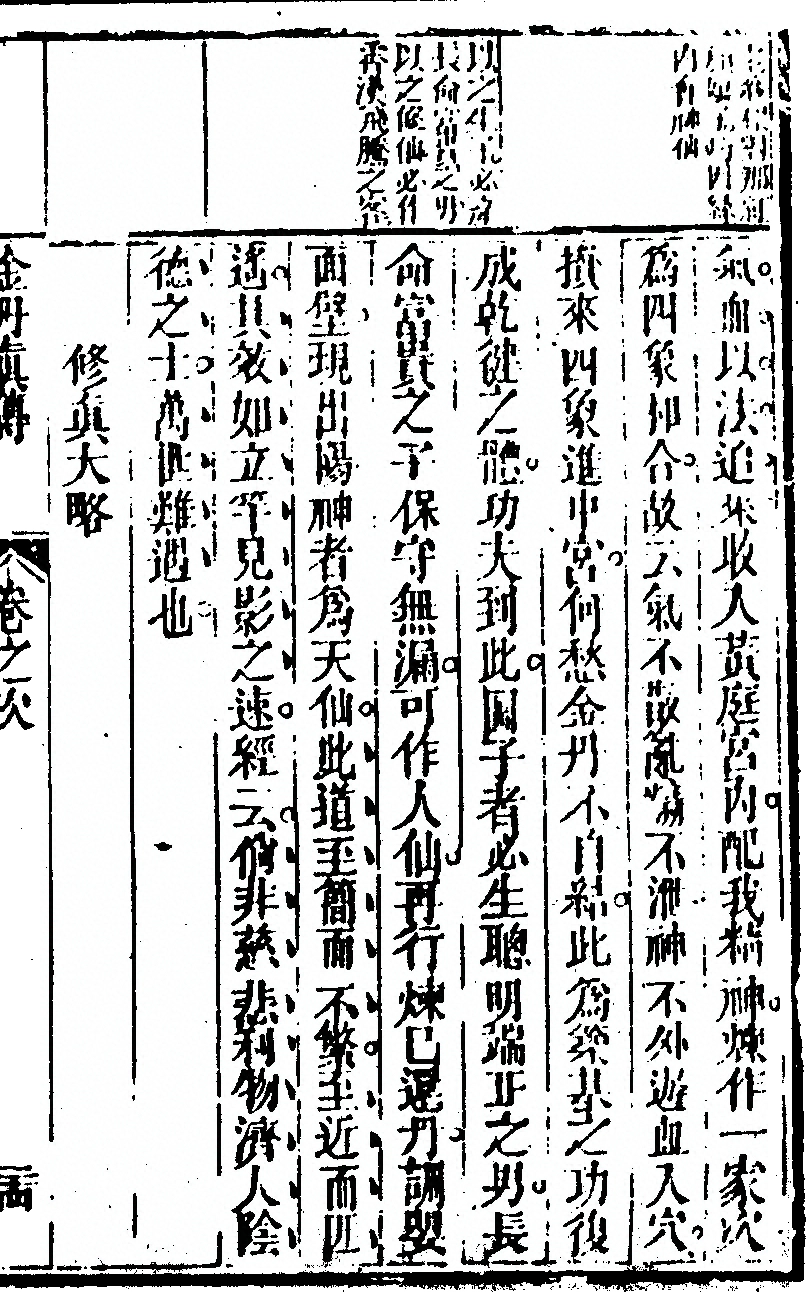 氣血以法追來收入黃庭宮內配我精神煉作一家次
爲四象和合故云氣不散亂精不洩神不外遊血入穴
攢來四象進中宮何愁金丹不自結此爲築基之功後
成乾健之體功夫到此國子者必生聰明端正之男長
命富貴之子保守無漏可作人仙再行煉已還丹調嬰
面壁現出陽神者爲天仙此道至簡而不繁至近而匹
遙其效如立竿見影之速經云倘非慈悲利物濟人陰
德之士萬世難遇也
修真大略
以之生子必
長命富貴之男
以之修仙必作
霄漢飛騰之客
內有神仙
金丹真傳
卷之次